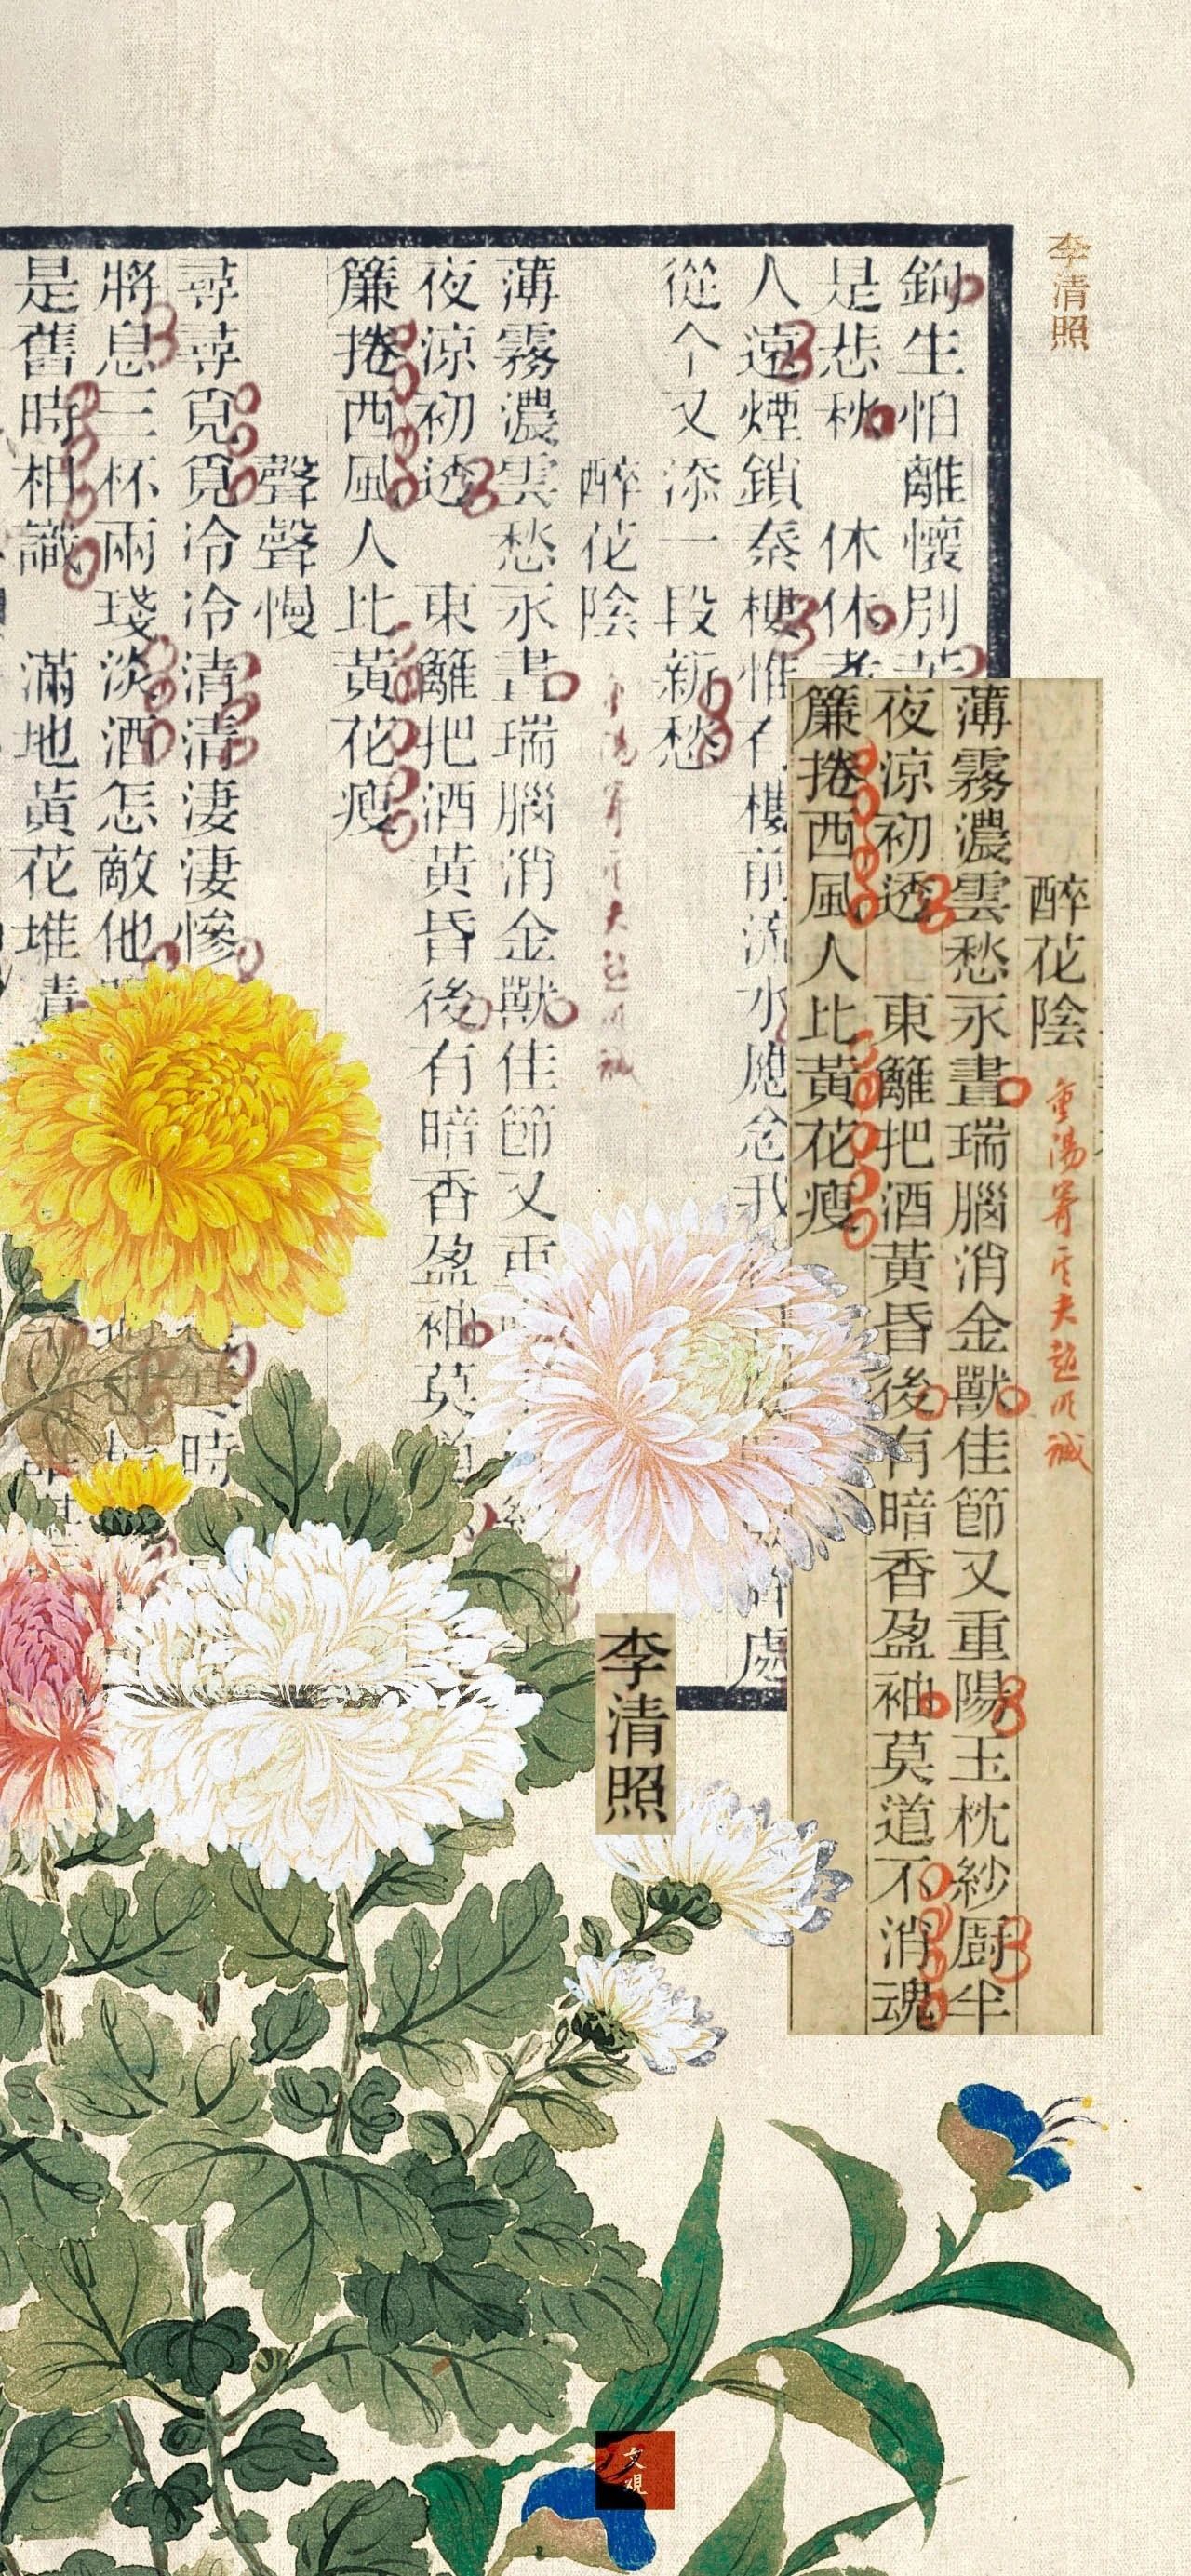 李清照
鉤生怕離懷別
是悲秋　休休
人遠煙鎖秦樓惟有樓前流水應念我
處
從个又添一段新愁
醉花陰
薄霧濃雲愁永晝瑞腦消金獸佳節又重
夜涼初透　東籬把酒黃昏後有暗香盈袖莫道
簾捲西風人比黃花瘦
聲聲慢
尋尋覓覓冷冷清清淒淒慘
時
將息三杯兩琖淡酒怎敵他
是舊時相識　滿地黃花堆積
醉花陰 重陽寄其夫趙明誠
薄霧濃雲愁永晝瑞腦消金獸佳節又重陽玉枕紗廚半
夜涼初透　東籬把酒黃昏後有暗香盈袖莫道不消魂
簾捲西風人比黃花瘦
李清照